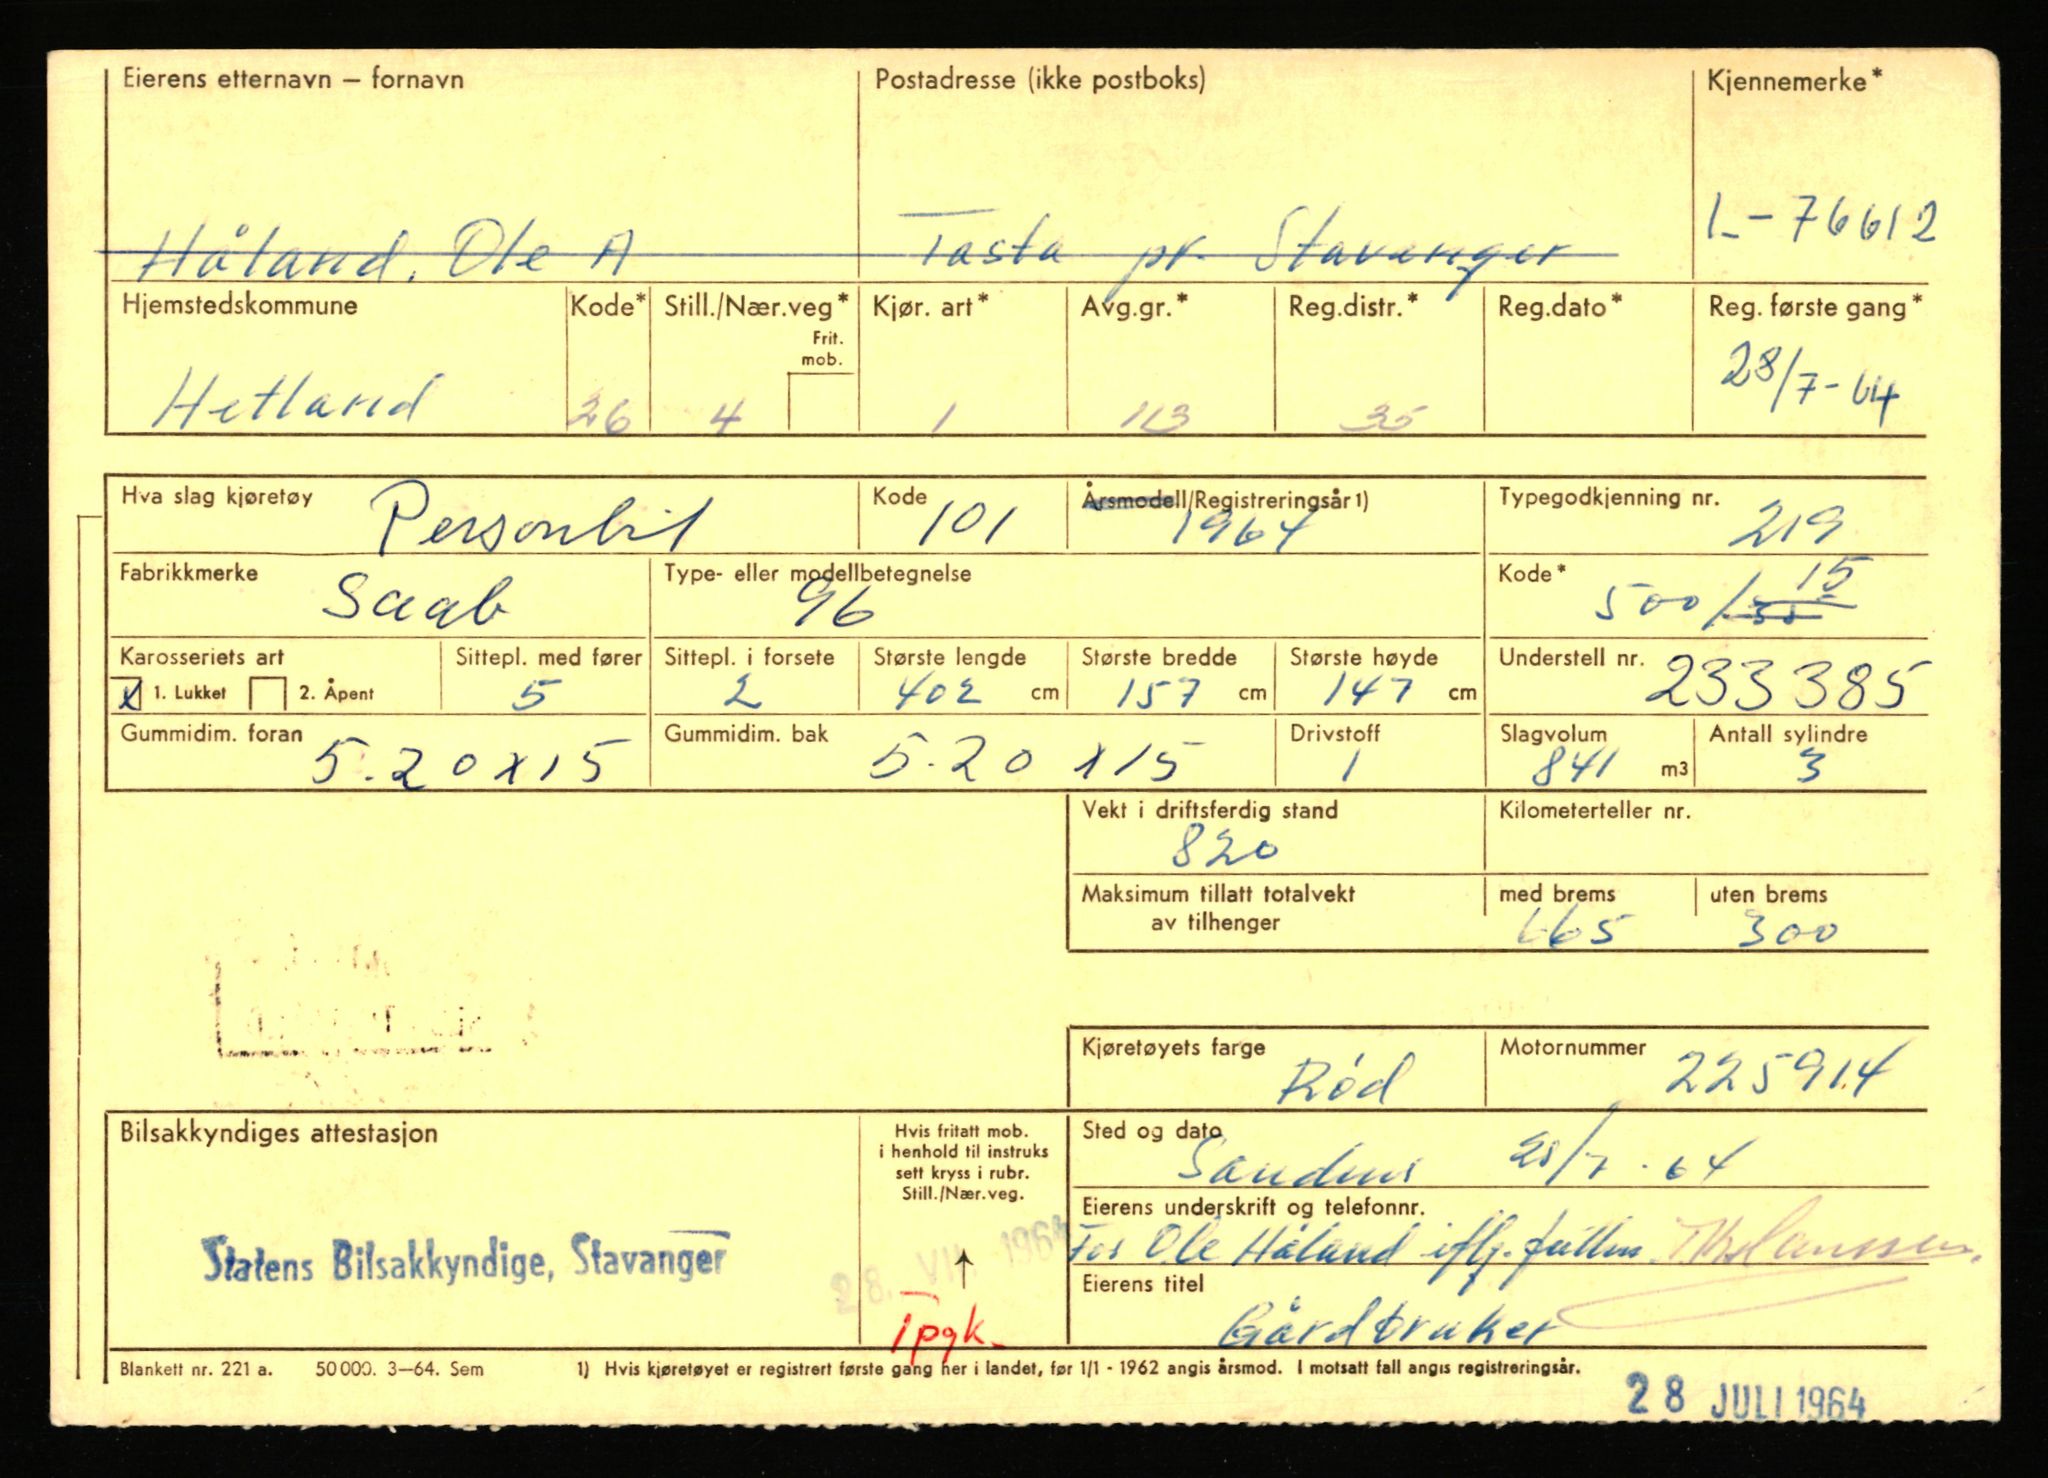 Eierens etternavn – fornavn Postadresse (ikke postboks) Kjennemerke*
Håland, Ole A Tasta pr. Stavanger L-76612
Hjemstedskommune Kode* Still./Nær.veg* Kjør. art* Avg.gr.* Reg.distr.* Reg.dato* Reg. første gang*
Frit.
mob.
Hetland 26 4 1 113 35 28/7-64
Hva slag kjøretøy Personbil Kode 101 Årsmodell/Registreringsår 1) 1964 Typegodkjenning nr. 219
Fabrikkmerke Saab Type- eller modellbetegnelse 96 Kode* 500/ 15
Karosseriets art Sittepl. med fører Sittepl. i forsete Største lengde Største bredde Største høyde Understell nr. 233385
x 1. Lukket 2. Åpent 5 2 402 cm 157 cm 147 cm
Gummidim. foran 5.20x15 Gummidim. bak 5.20x15 Drivstoff 1 Slagvolum 841 m3 Antall sylindre 3
Vekt i driftsferdig stand Kilometerteller nr.
820
Maksimum tillatt totalvekt med brems uten brems
av tilhenger 665 300
Kjøretøyets farge Rød Motornummer 225914
Bilsakkyndiges attestasjon Hvis fritatt mob.
i henhold til instruks
sett kryss i rubr.
Still./Nær.veg.
Sted og dato
Sandnes 28/7-64
Eierens underskrift og telefonnr.
28. VII. 1964
For Ole Håland iflg. fullm.
Statens Bilsakkyndige, Stavanger
Eierens titel
Tpgk. Gårdbruker
Blankett nr. 221 a. 50 000. 3–64. Sem 1) Hvis kjøretøyet er registrert første gang her i landet, før 1/1 - 1962 angis årsmod. I motsatt fall angis registreringsår.
28 JULI 1964